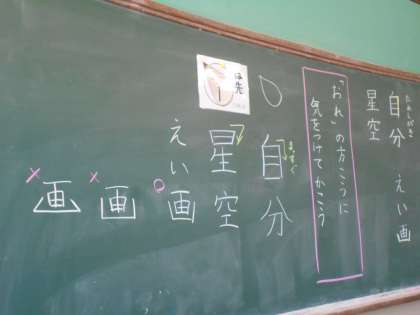 自分
えい画
星空
「おれ」の方こうに
気をつけてかこう
まっすぐ
自分
ほ先
星空
えい画
画
画